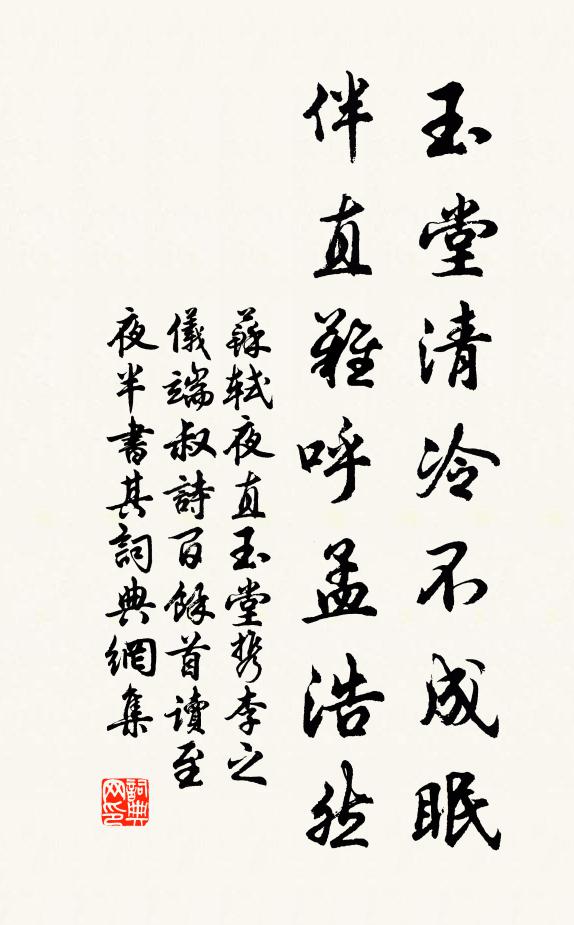 玉堂清冷不成眠
伴直難呼孟浩然
蘇軾夜直玉堂携李之
儀端叔詩百餘首讀至
夜半書其詞典網集
詞典
网印